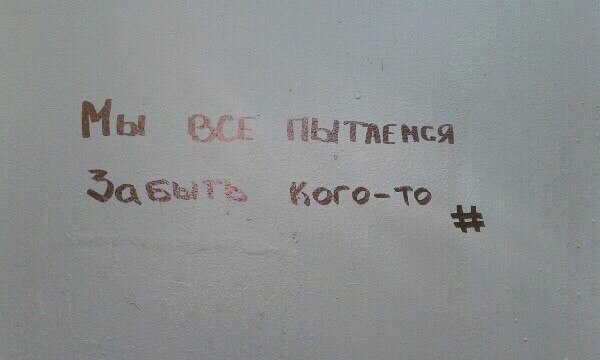 Мы ВСЕ ПЫТАЕМСЯ
Забыть кого-то #